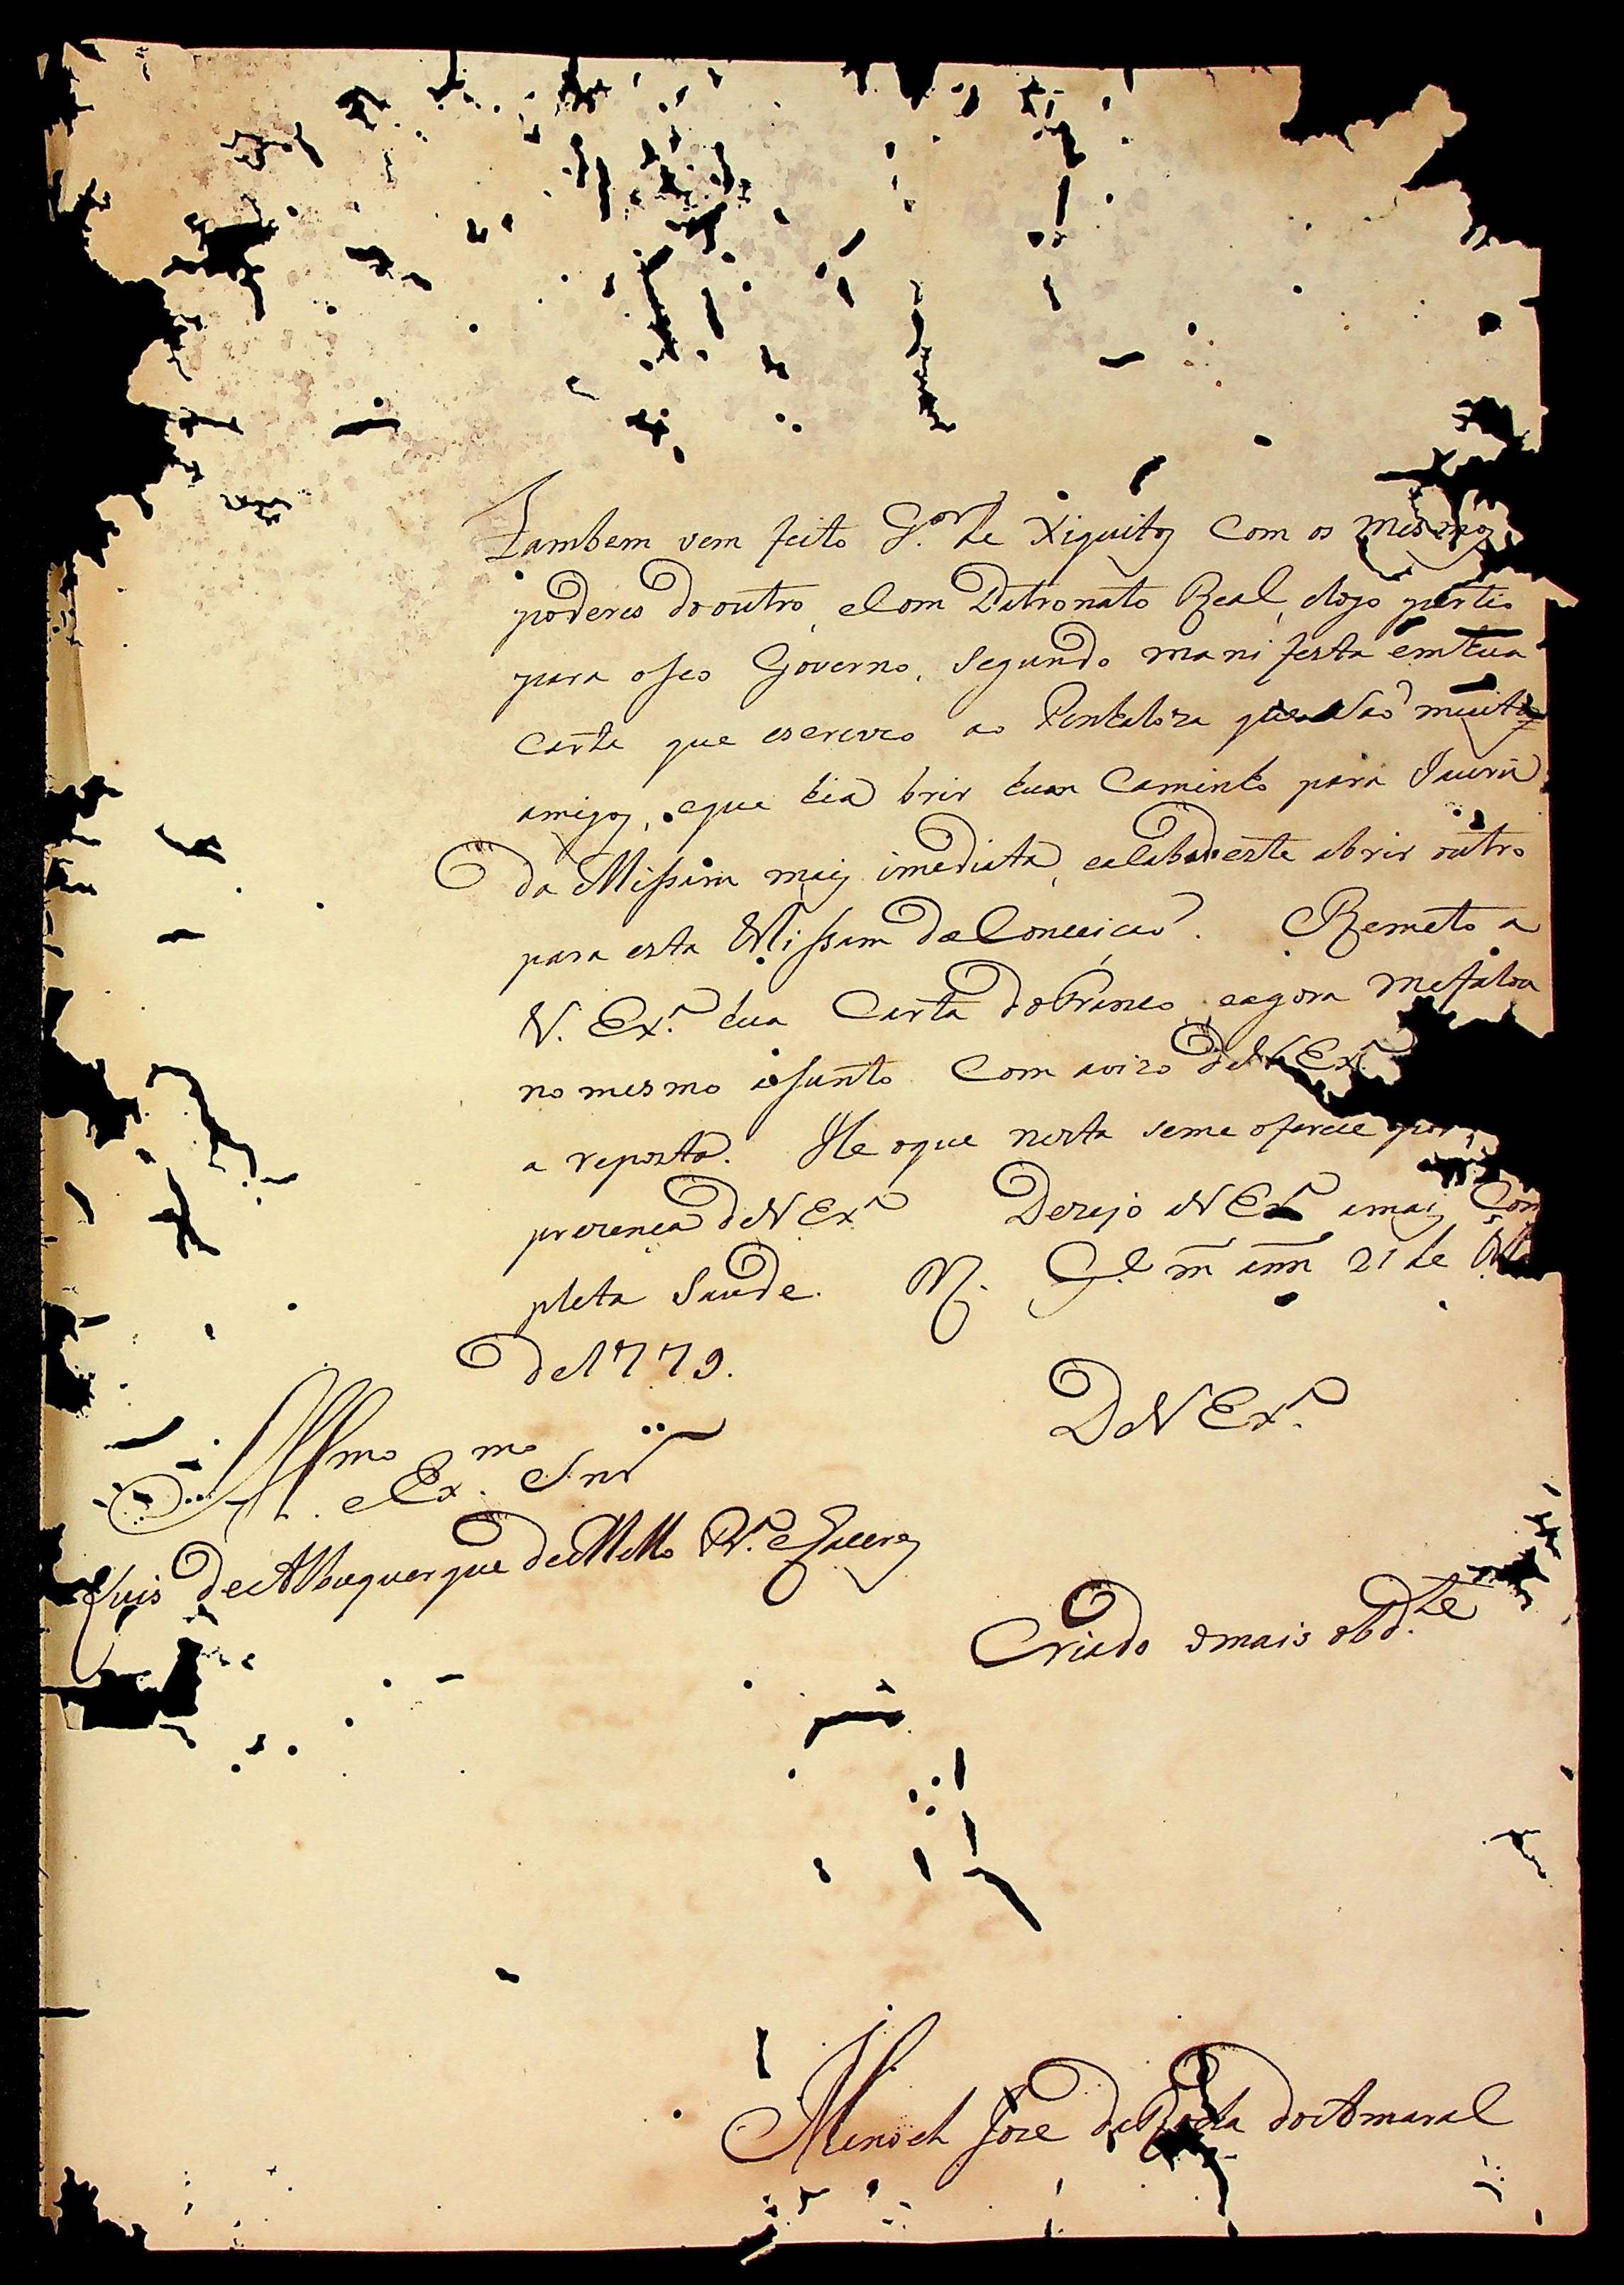 Tambem vem feito G.or de Xiquitos Com os mesmos
poderes do outro, e Com Patronato Real, e logo partio
para o seo Governo, Segundo manifesta em hua
Carta que escreveo ao que São muitos
amigos, e que hia brir hum Caminho para Jaurú
da Missam mais imediata, e acabado este abrir outro
para esta Missam da Conceicaó. Remeto a
V. Ex.a hua Carta do Franco, e agora me falou
no mesmo asunto Com avizo de V Ex.a
a reposta. He o que nesta se me oferece por
prezenca de V Ex.a Dezejo a V Ex.a a mais Com
pleta Saude. M. G.l m ann 21 de
de 1779.
De V Ex.a
Ill.mo e Ex.mo Snr
Luis de Albuquerque de Mello P.ra e Caceres
Criado o mais obd.te
Manoel Joze da Rocha do Amaral